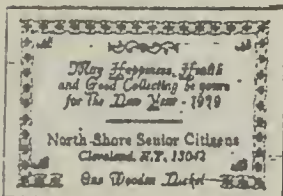 May Happiness, Health
and Good Collecting be yours
for The New Year - 1979
North Shore Senior Citizens
Cleveland, N.Y. 13042
One Wooden Nickel